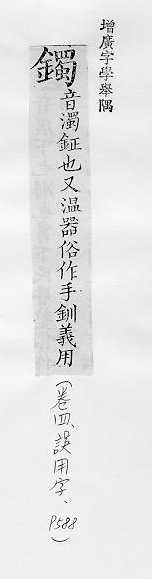 增廣字學舉隅
鐲音濁鉦也又温器俗作手釧義用
（卷四、誤用字、P588）